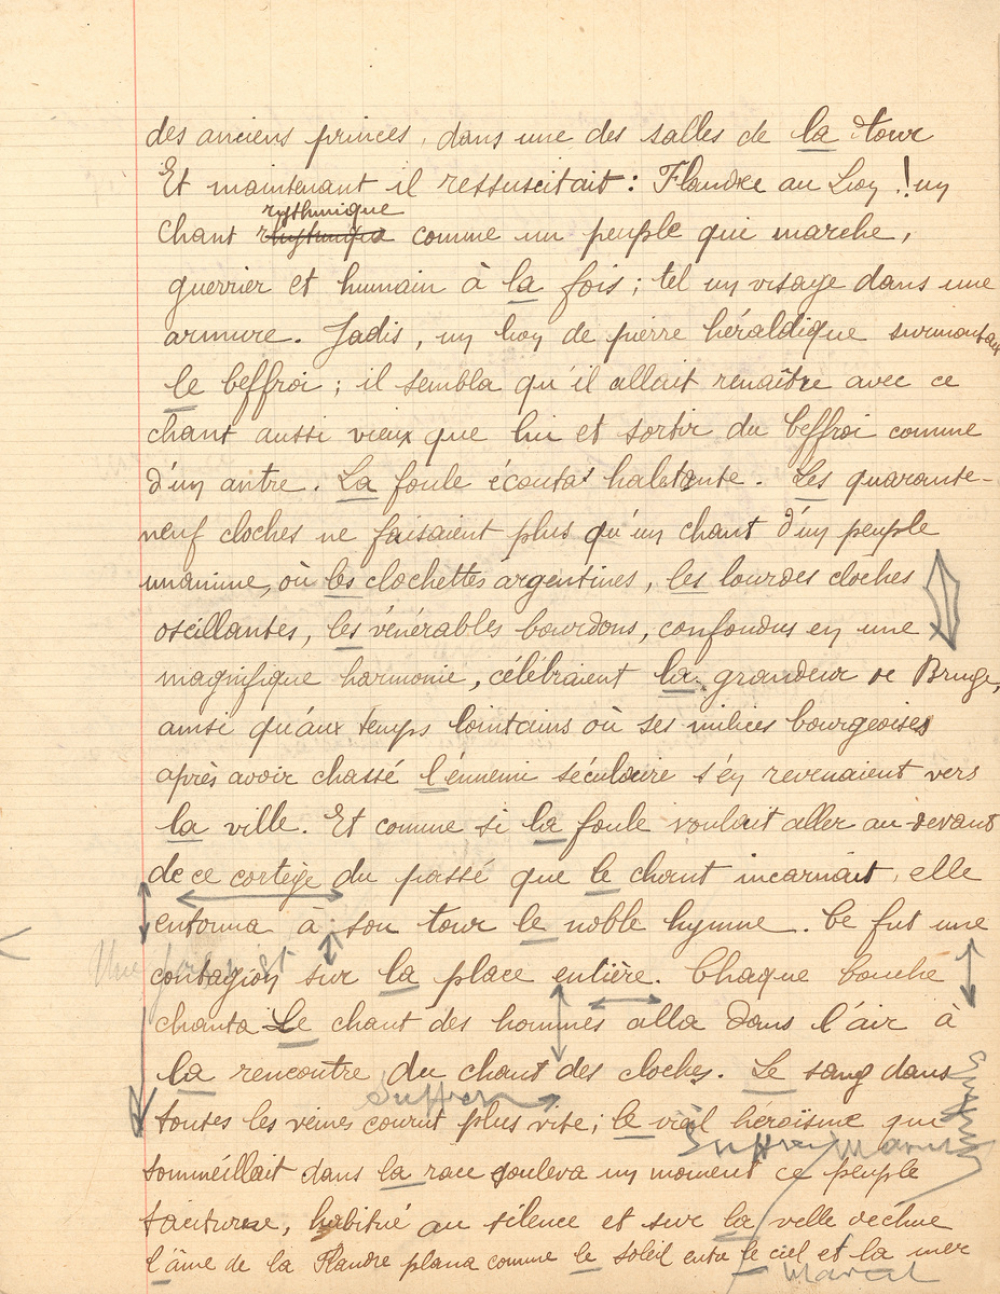 des anciens princes, dans une des salles de la tour
Et maintenant il ressuscitait : Flandre au Lion ! un
rythmique
chant comme un peuple qui marche,
guerrier et humain à la fois ; tel un visage dans une
armure. Jadis, un lion de pierre héraldique surmontait
le beffroi ; il sembla qu'il allait renaître avec ce
chant aussi vieux que lui et sortir du beffroi comme
d'un antre. La foule écouta haletante. Les quarante-
neuf cloches ne faisaient plus qu'un chant d'un peuple
unanime, où les clochettes argentines, les lourdes cloches
oscillantes, les vénérables bourdons, confondus en une
magnifique harmonie, célébraient la grandeur de Bruges,
ainsi qu'aux temps lointains où ses milices bourgeoises
après avoir chassé l'énnemi séculaire s'en revenaient vers
la ville. Et comme si la foule voulait aller au-devant
de ce cortège du passé que le chant incarnait, elle
entonna à son tour le noble hymne. Ce fut une
Une
contagion sur la place entière. Chaque bouche
chanta Le chant des hommes alla dans l'air à
la rencontre du chant des cloches. Le sang dans
Suffren
toutes les veines courut plus vite ; le vieil héroïsme qui
Suffren Marcel
sommeillait dans la race souleva un moment ce peuple
taciturne, habitué au silence et sur la velle déchue
l'âme de la Flandre plana comme le soleil entre le ciel et la mer
Marcel